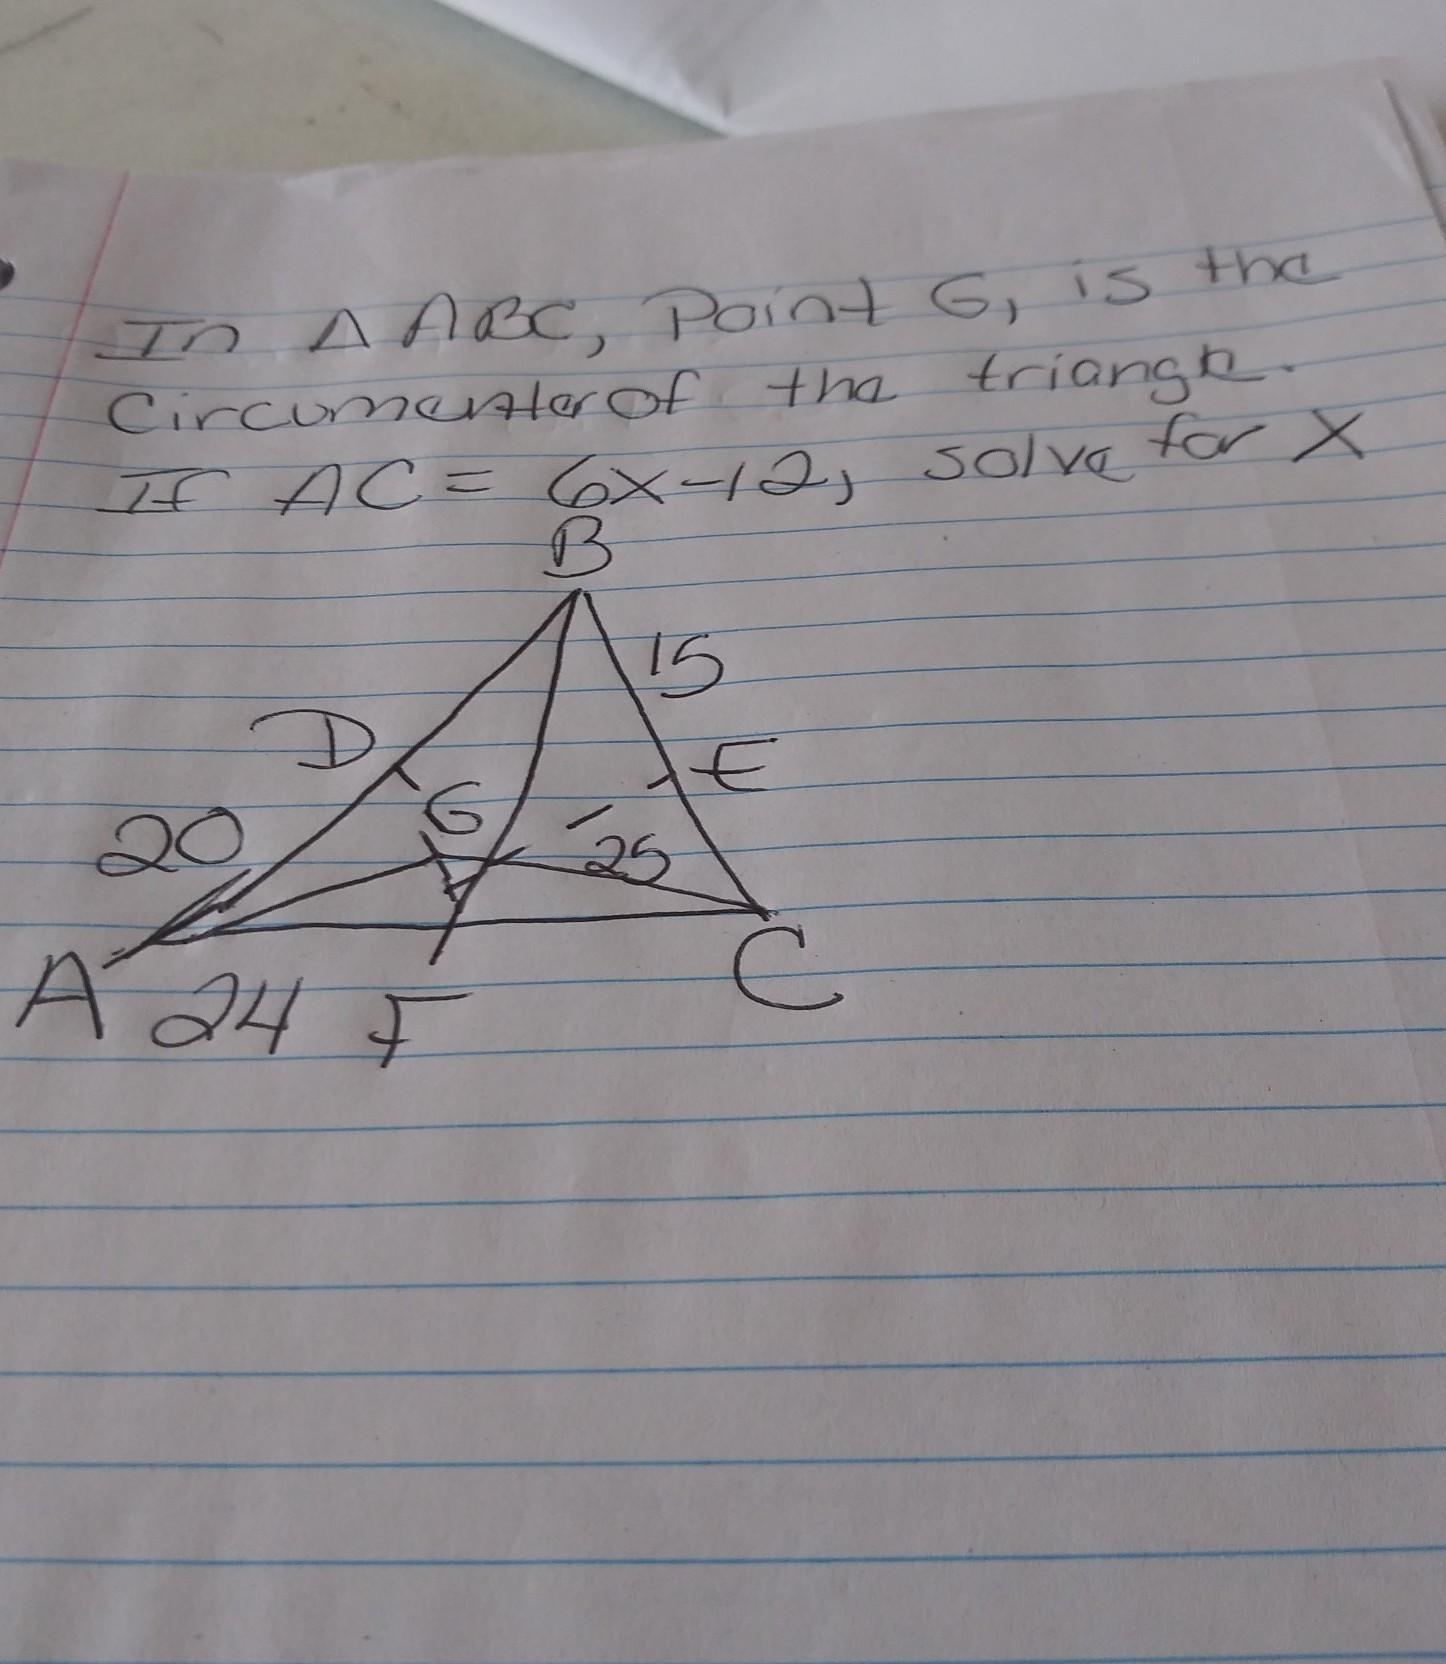 In △ ABC, Point G, is the
Circumenter of the triangle.
If AC = 6x-12, solve for X
B
15
D
E
G
20
25
A
C
24
F